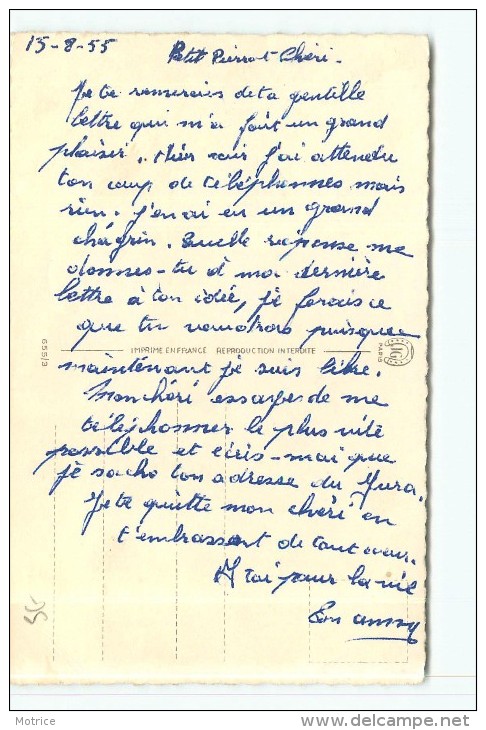 15-8-55
Petit Pierrot Chéri.
Je te remercies de ta gentille
lettre qui m'a fait un grand
plaisir. Hier soir j'ai attendu
ton coup de téléphonnes mais
rien. j'en ai eu un grand
chagrin. Quelle reponse me
donnes-tu à ma dernière
lettre à ton idée, je ferais ce
que tu voudrais puisque
IMPRIME EN FRANCE REPRODUCTION INTERDITE
655/3
PARIS
maintenant je suis libre.
Mon chéri essayes de me
téléphonner le plus vite
possible et écris-moi que
je sache ton adresse du Jura.
Je te quitte mon chéri en
t'embrassant de tout coeur.
A toi pour la vie
Ton
Motrice
http://www.delcampe.net